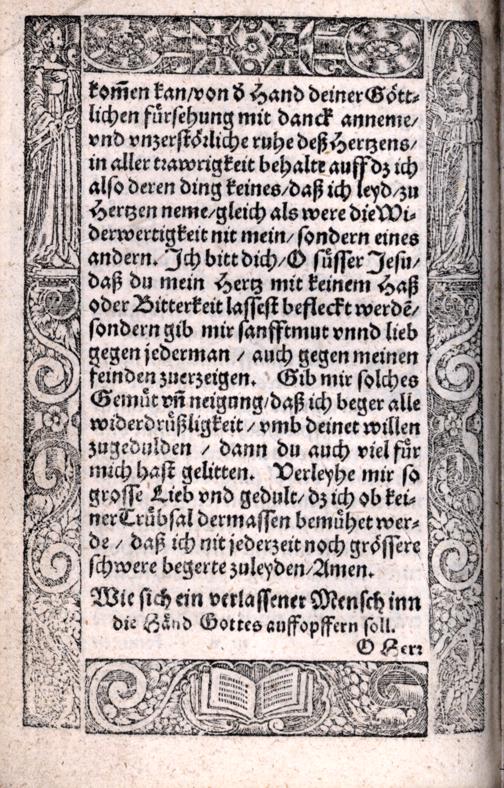 kom̃en kan/von d̕ Hand deiner Gött⸗
lichen fürsehung mit danck anneme/
vnd vnzerstörliche ruhe deß Hertzens/
in aller trawrigkeit behalte auff dz ich
also deren ding keines/daß ich leyd/zu
Hertzen neme/gleich als were die Wi⸗
derwertigkeit nit mein/sondern eines
andern. Ich bitt dich/O süsser Jesu/
daß du mein Hertz mit keinem Haß
oder Bitterkeit lassest befleckt werdē/
sondern gib mir sanfftmut vnnd lieb
gegen jederman / auch gegen meinen
feinden zuerzeigen. Gib mir solches
Gemüt vñ neigung/daß ich beger alle
widerdrüßligkeit/vmb deinet willen
zugedulden / dann du auch viel für
mich hast gelitten. Verleyhe mir so
grosse Lieb vnd gedult/dz ich ob kei⸗
ner Trübsal dermassen bemühet wer⸗
de / daß ich nit jederzeit noch grössere
schwere begerte zuleyden/Amen.
Wie sich ein verlassener Mensch inn
die Händ Gottes auffopffern soll.
O Herꝛ